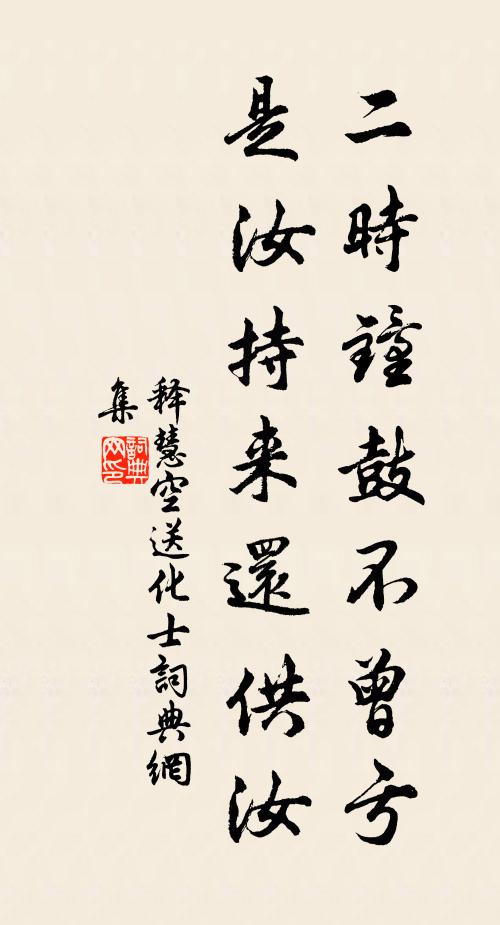 二時鐘鼓不曾亏
是汝持来還供汝
释慧空送化士詞典網
集
詞典网印